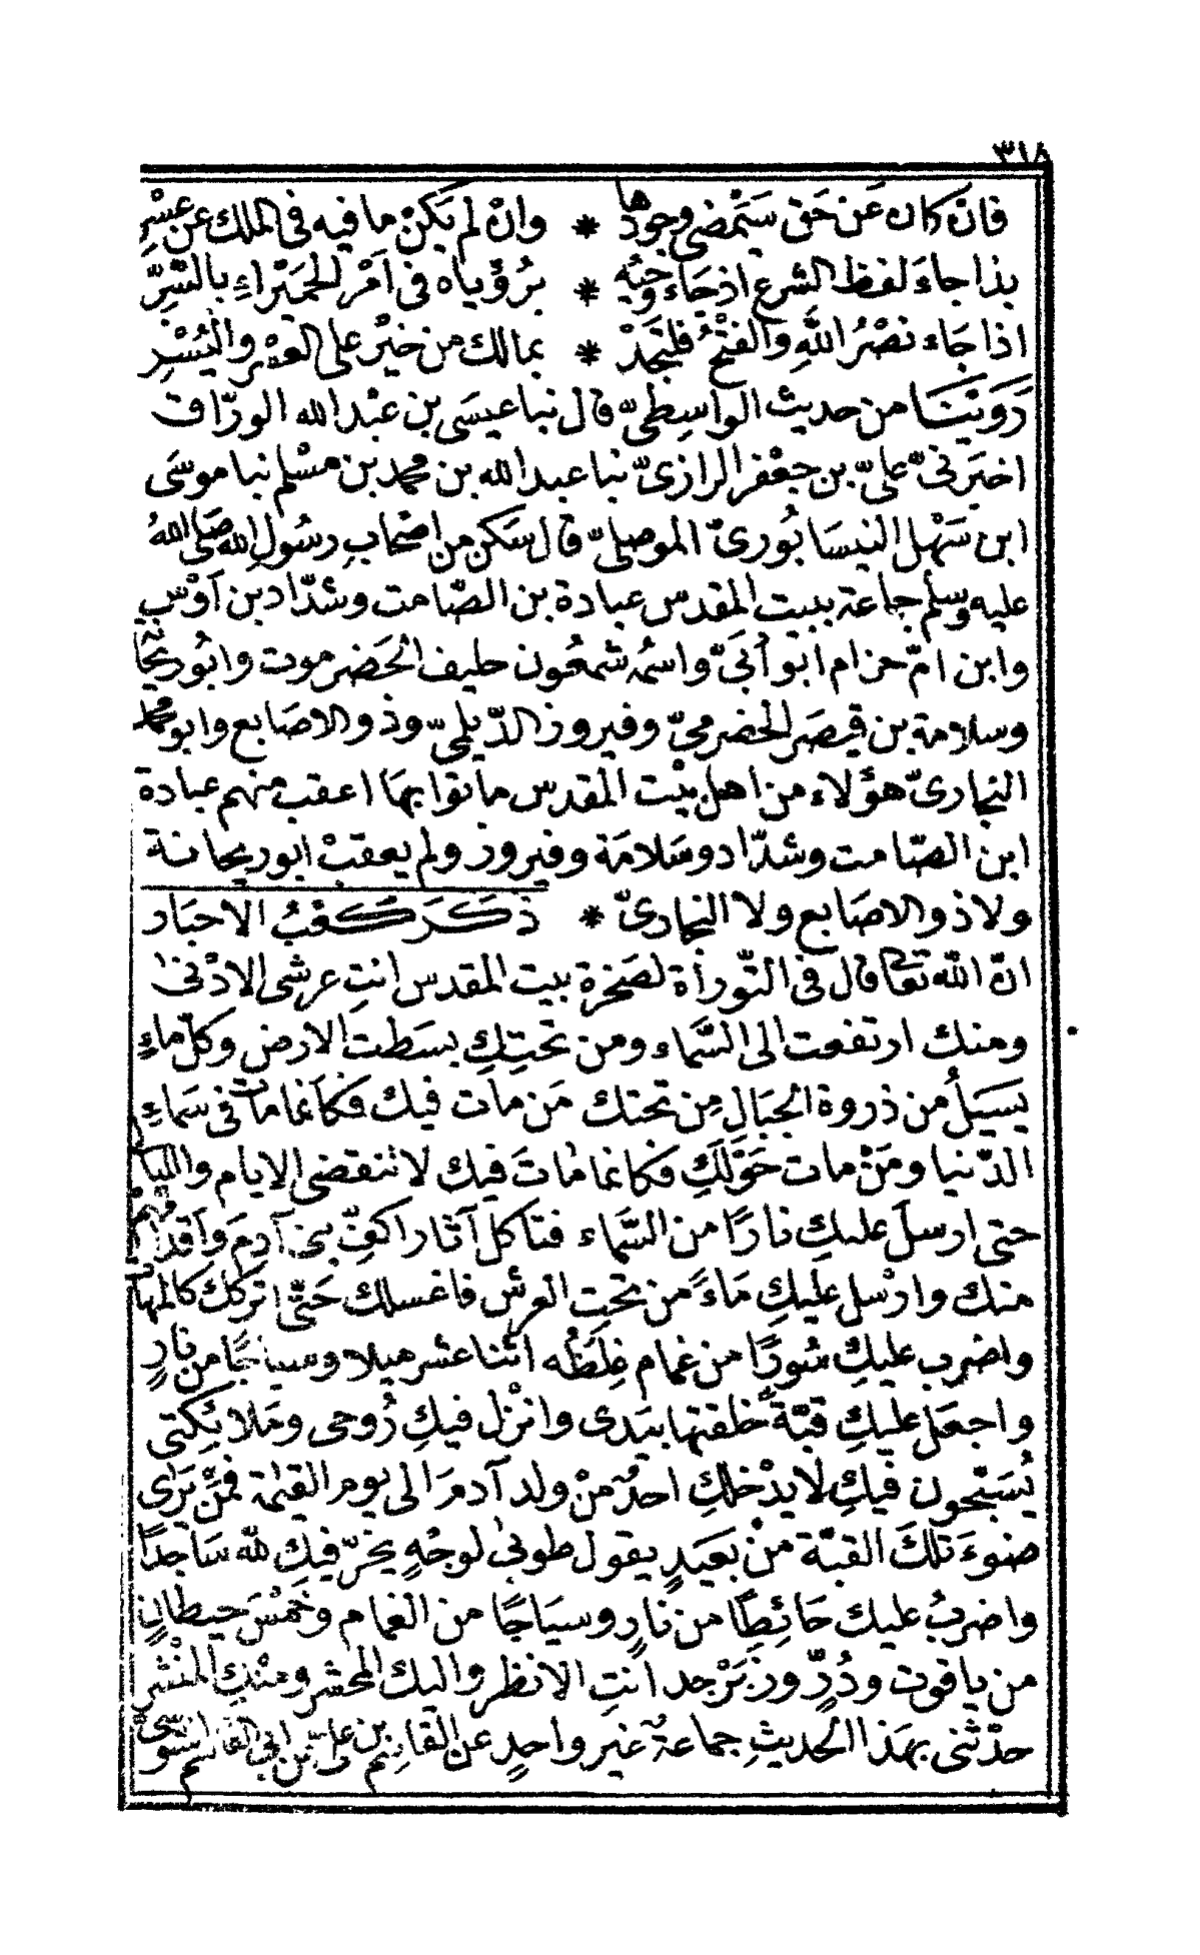 ٣١٨
فان كان عن حق ستمضى وجودها * وان لم يكن ما فيه فى الملك عن عسر
بذا جاء لفظ الشرع اذ جاء وحيه * برؤياه فى امر الحميراء بالسّرّ
اذا جاء نصر الله والفتح فلتجد * بمالك من خير على العسر واليسر
روينا من حديث الواسطىّ قال نبا عيسى بن عبد الله الورّاق
اخبرنى علىّ بن جعفر الرازىّ نبا عبد الله بن محمد بن مسلم نبا موسى
ابن سهل النيسابورىّ الموصلىّ قال سكن من اصحاب رسول الله صلى الله
عليه وسلم جماعة ببيت المقدس عبادة بن الصّامت وشدّاد بن اوس
وابن امّ حزام ابو أبىّ واسمه شمعون حليف الحضرموت وابو ريحانة
وسلامة بن قيصر الحضرمىّ وفيروز الدّيلمىّ وذو الاصابع وابو محمد
النجارىّ هؤلاء من اهل بيت المقدس ماتوا بها اعقب منهم عبادة
ابن الصّامت وشدّاد وسلامة وفيروز ولم يعقب ابو ريحانة
ولا ذو الاصابع ولا النجارىّ * ذكر كعب الاحبار
انّ الله تعالى قال فى التّورأة لصخرة بيت المقدس انتِ عرشى الادنى
ومنك ارتفعت الى السّماء ومن تحتكِ بسطت الارض وكلّ ماءٍ
يسيلُ من ذروة الجبال مِن تحتك مَن مات فيك فكأنما مات فى سماءِ
الدّنيا ومَن مات حَوْلَكِ فكانما ماتَ فيك لا تنقضى الايام والليالى
حتى ارسلَ عليكِ نارًا من السّماء فتاكل آثار اكفّ بنى آدمَ واقدامهم
منك وارسل عليكِ ماءً من تحت العرش فاغسلك حتّى اتركك كالمهاة
واضرب عليك سُورًا من غمام غِلَظُه اثنا عشر ميلا وسياجًا من نارٍ
واجعل عليكِ قبّة خلقتها بيدى وانزل فيكِ رُوحى وملائكتى
يُسبّحون فيكِ لا يدخلكِ احدٌ من ولد آدمَ الى يوم القيٰمة فمَن يَرَى
ضوءَ تلك القبّة من بَعيدٍ يقول طوبى لوجهٍ يخرّ فيكِ لله ساجدًا
واضربُ عليك حَائِطًا من نارٍ وسيَاجًا من الغمام وخمسَ حيطانٍ
من ياقوت ودُرٍّ وزبرجد انتِ الانظر واليك المحشر ومنكِ المنشر
حدّثنى بهذا الحديثِ جماعةٌ غير واحدٍ عن القاسم بن علىّ بن ابى القاسم